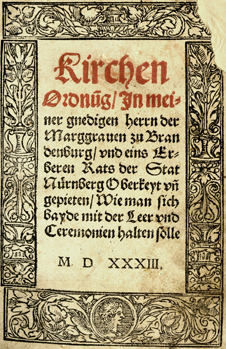 Kirchen
Ordnũg/ In mei-
ner gnedigen herrn der
Marggrauen zu Bran
denburg/ vnd eins Er-
beren Rats der Stat
Nürnberg Oberkeyt vñ
gepieten/ Wie man sich
bayde mit der Leer vnd
Ceremonien halten solle
M. D XXXIII.